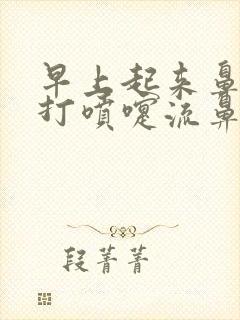 早上起来鼻
打喷嚏流鼻
段菁菁